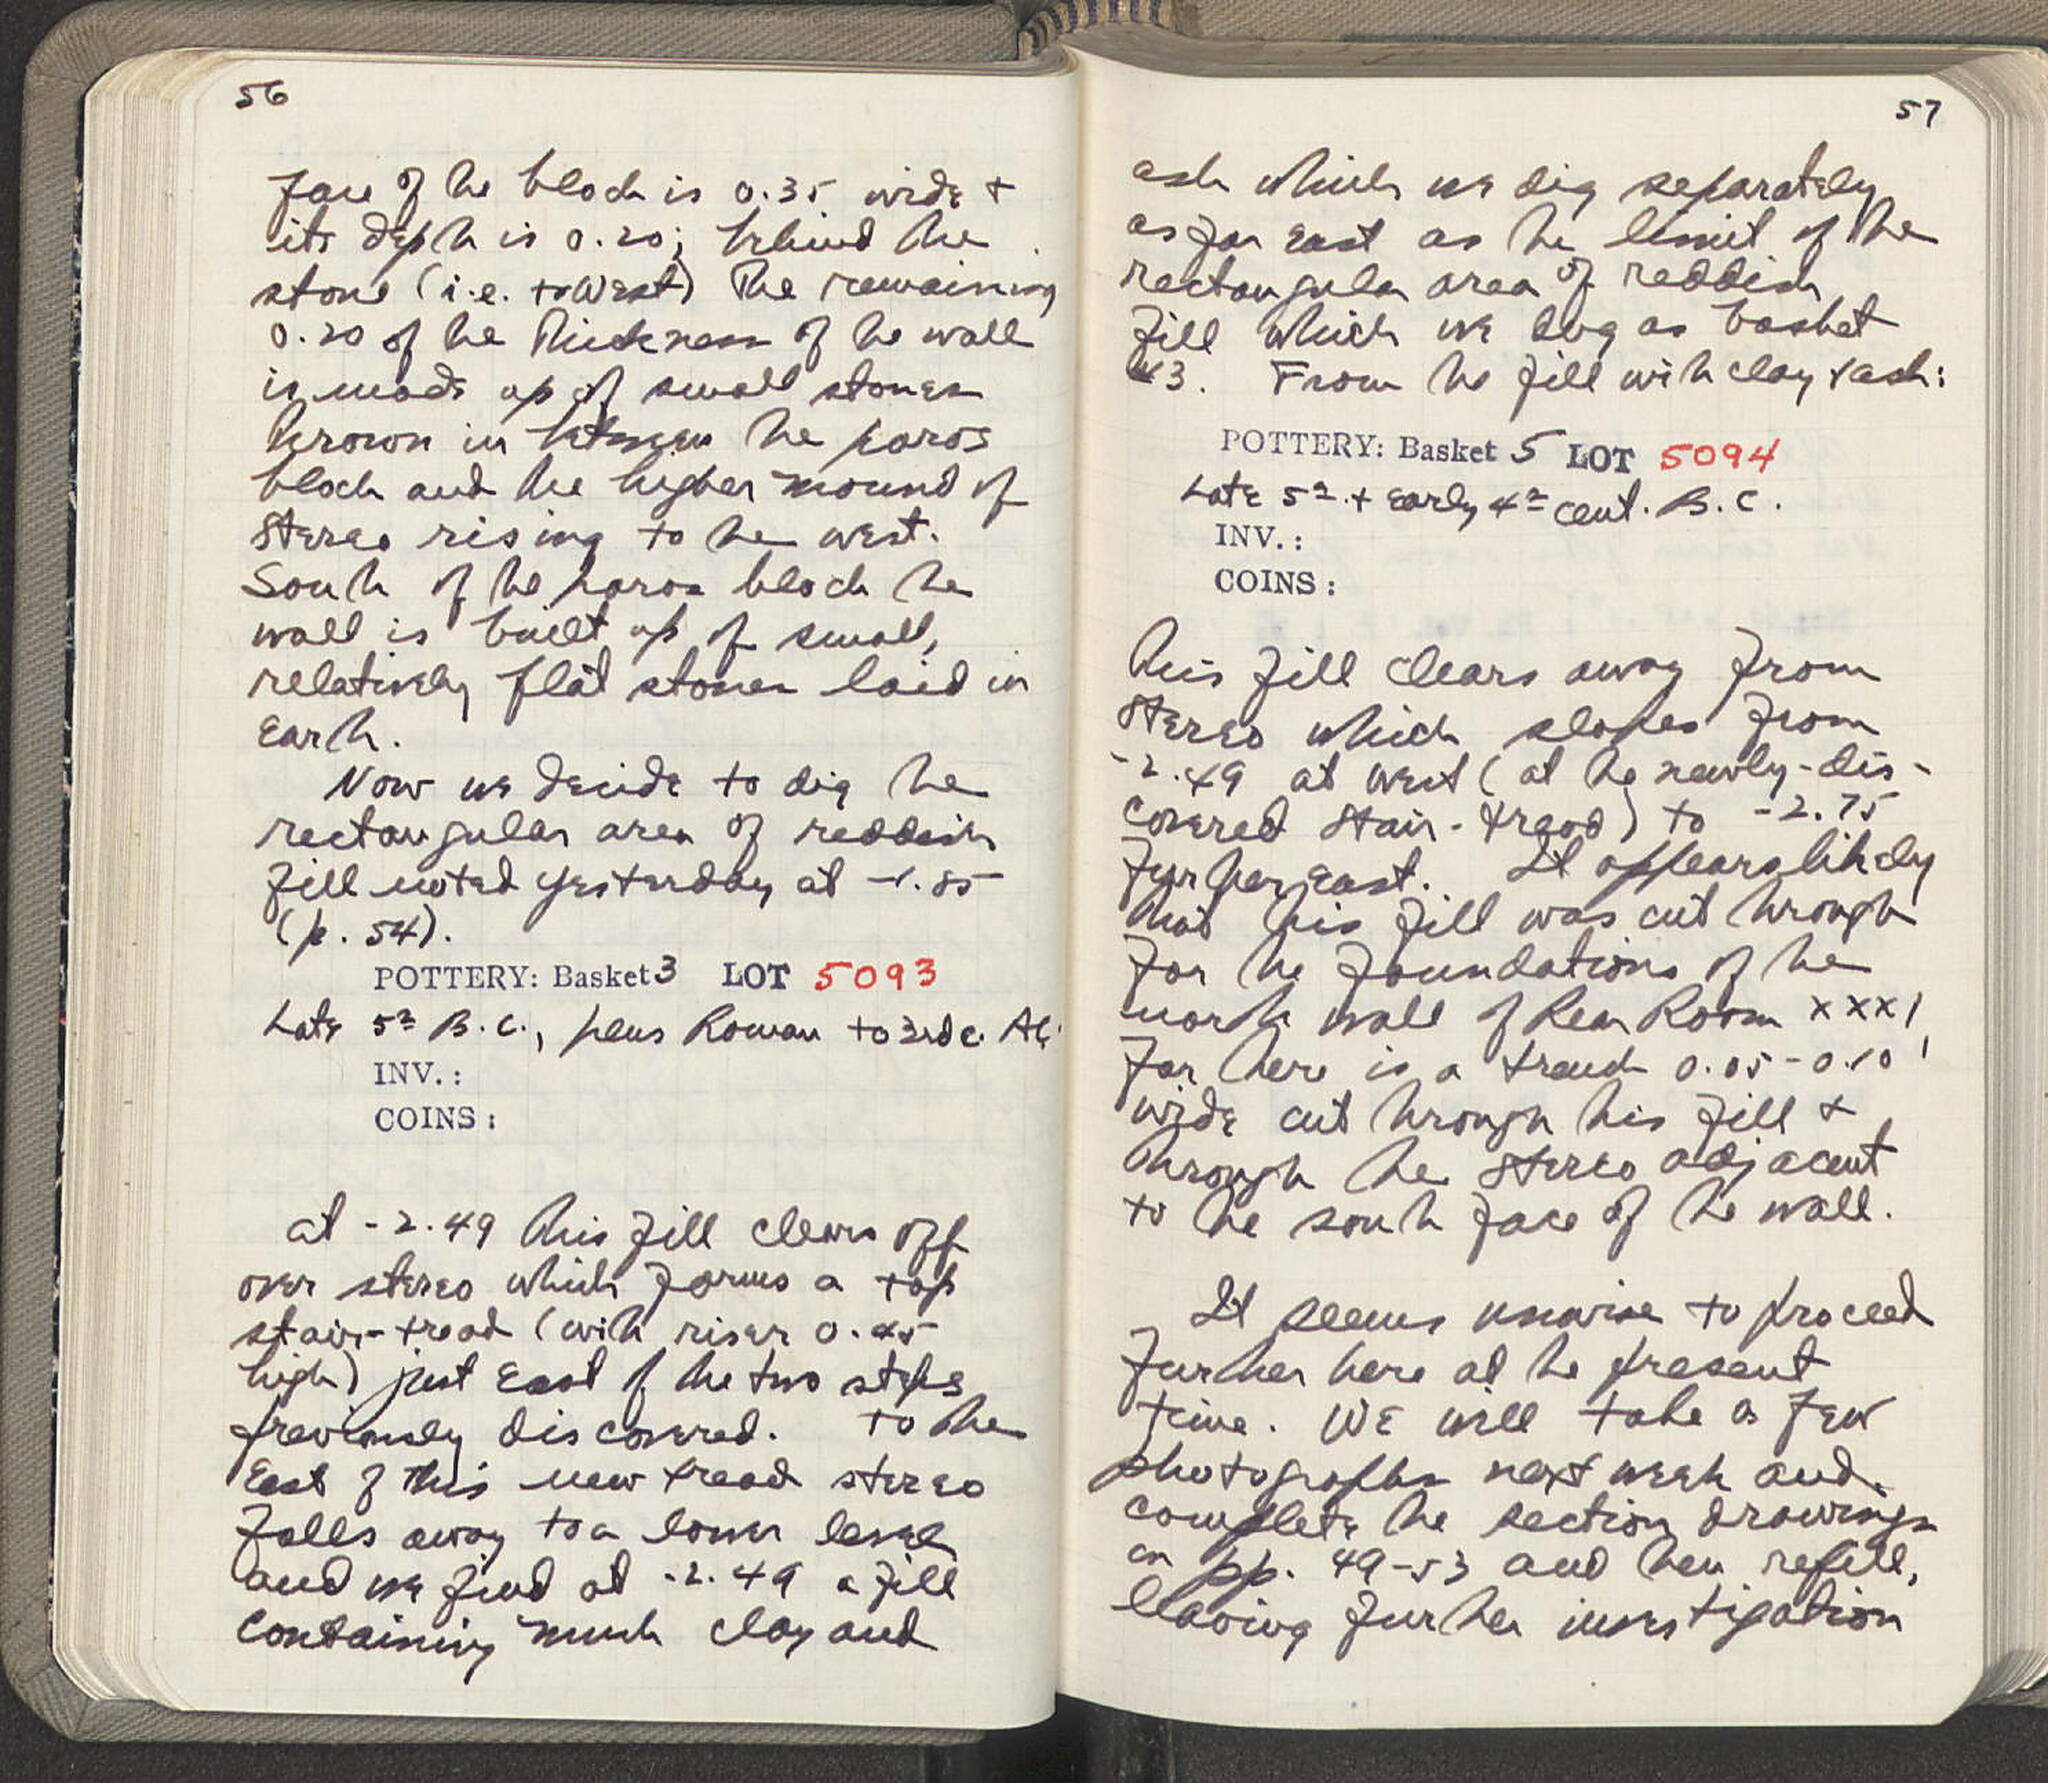 56
face of the block is 0.35 wide +
its depth is 0.20; behind the
stone (i.e. to West) the remaining
0.20 of the thickness of the wall
is made up of small stones
thrown in between the poros
block and the higher mound of
stereo rising to the west.
South of the poros block the
wall is built up of small,
relatively flat stones laid in
earth.
Now we decide to dig the
rectangular area of reddish
fill noted yesterday at -1.85
(p. 54).
POTTERY: Basket 3 LOT 5093
Late 5th B.C., plus Roman to 3rd c. AC
INV.:
COINS:
at -2.49 this fill clears off
over stereo which forms a top
stair-tread (with riser 0.45
high) just East of the two steps
previously discovered. To the
East of this new tread stereo
falls away to a lower level
and we find at -2.49 a fill
containing much clay and
57
ash which we dig separately
as far East as the limit of the
rectangular area of reddish
fill which we dug as basket
#3. From the fill with clay + ash:
POTTERY: Basket 5 LOT 5094
Late 5th + Early 4th cent. B.C.
INV.:
COINS:
This fill clears away from
stereo which slopes from
-2.49 at West (at the newly-dis-
covered stair-tread) to -2.75
further East. It appears likely
that this fill was cut through
for the foundations of the
north wall of Rear Room XXXI,
for there is a trench 0.05-0.10
wide cut through this fill +
through the stereo adjacent
to the south face of the wall.
It seems unwise to proceed
further here at the present
time. We will take a few
photographs next week and
complete the section drawings
on pp. 49-53 and then refill,
leaving further investigation